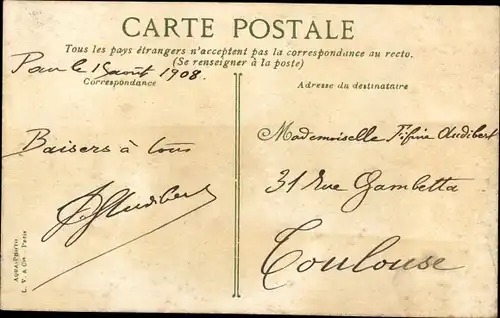 CARTE POSTALE
Tous les pays étrangers n'acceptent pas la correspondance au recto.
(Se renseigner à la poste)
Pau le 15 août 1908.
Correspondance
Adresse du destinataire
Baisers à tous
Audibert
Mademoiselle Fifine Audibert
31 Rue Gambetta
Toulouse
AQUA-PHOTO
L. V. & Cie Paris